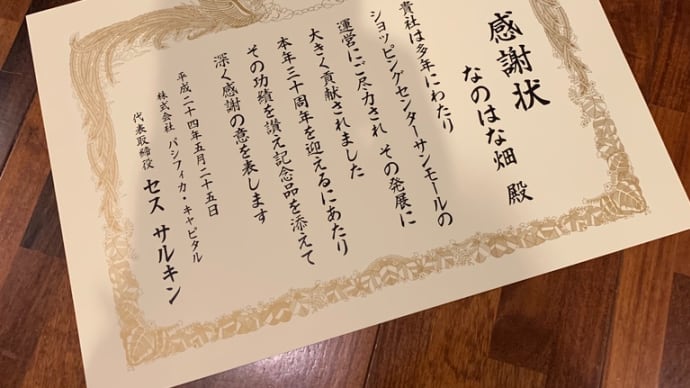 感謝状
なのはな畑 殿
貴社は多年にわたり
ショッピングセンターサンモールの
運営にご尽力され その発展に
大きく貢献されました
本年三十周年を迎えるにあたり
その功績を讃え記念品を添えて
深く感謝の意を表します
平成二十四年五月二十五日
株式会社 パシフィカ・キャピタル
代表取締役 セス サルキン